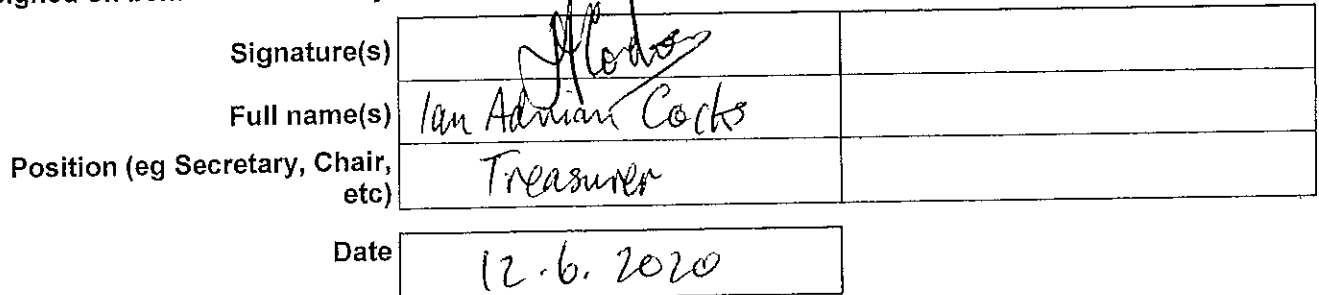 Signature(s)
Full name(s) Ian Adrian Cocks
Position (eg Secretary, Chair, etc) Treasurer
Date 12.6.2020